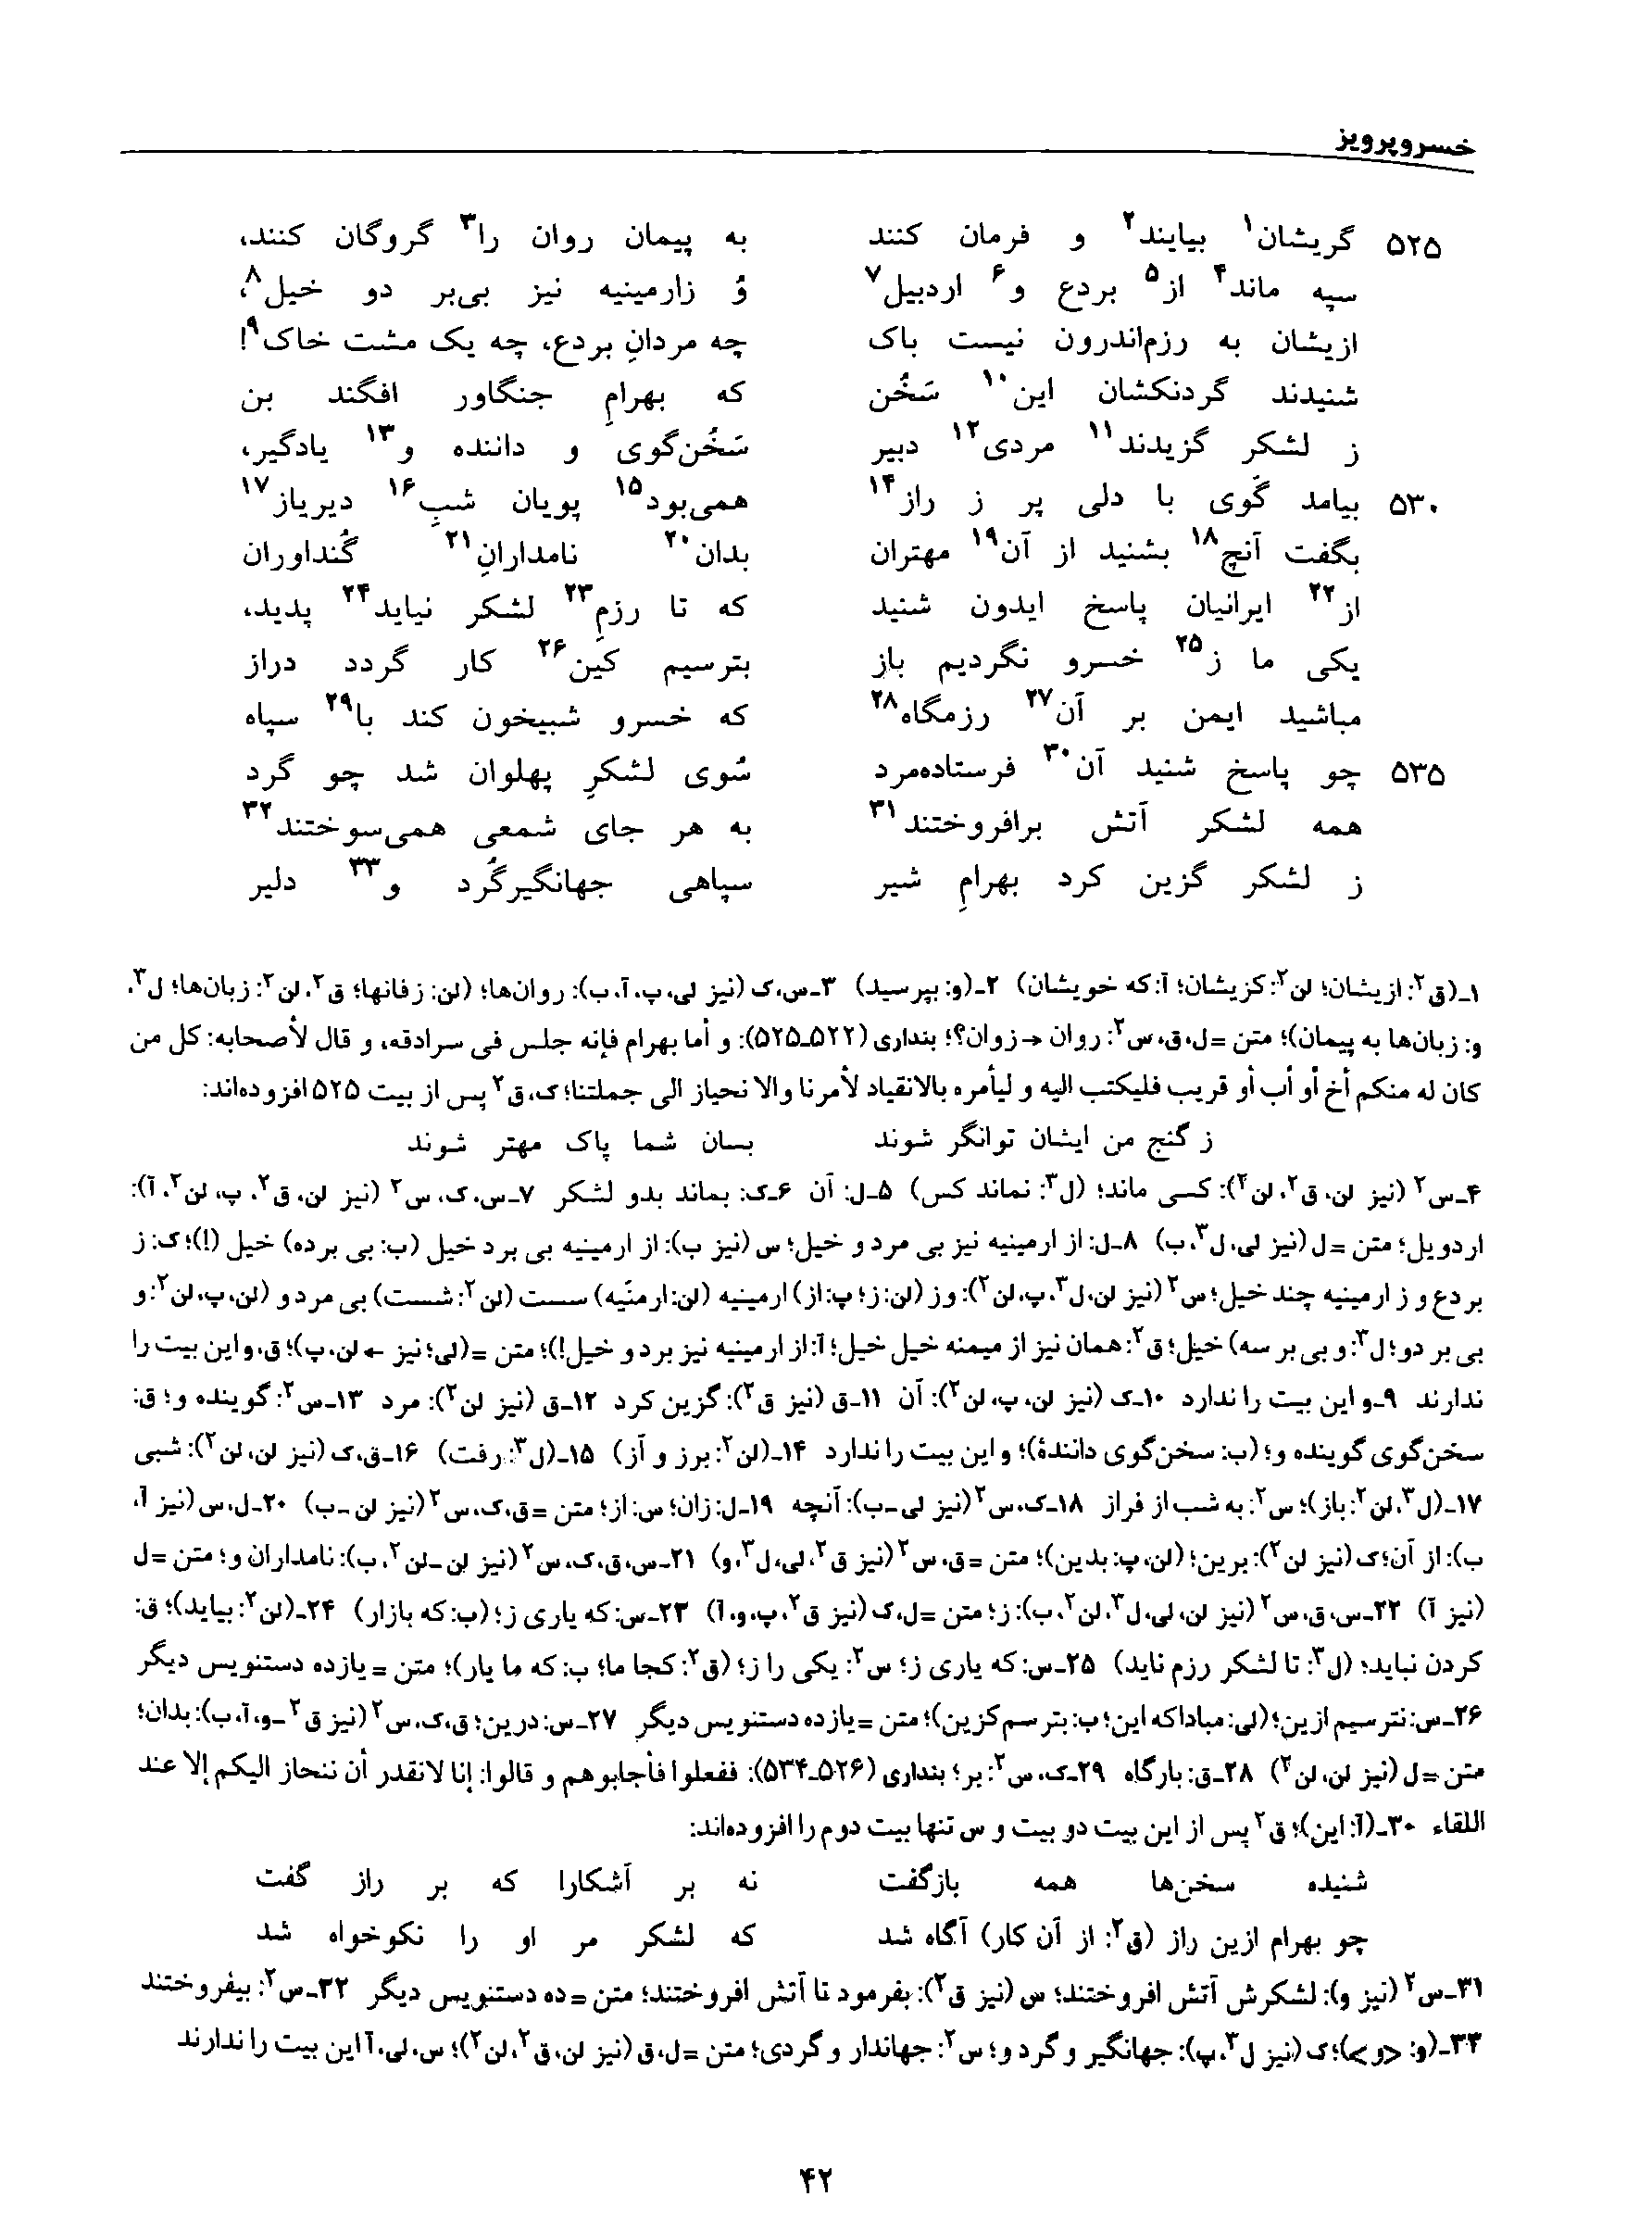 خسرو پرویز
۵۲۵ گریشان۱ بیایند۲ و فرمان کنند به پیمان روان را۳ گروگان کنند،
سپه ماند۴ از۵ بردع و۶ اردبیل۷ وُ زارمینیه نیز بی‌بر دو خیل۸،
ازیشان به رزم‌اندرون نیست باک چه مردانِ بردع، چه یک مشت خاک۹!
شنیدند گردنکشان این۱۰ سَخُن که بهرامِ جنگاور افگند بن
ز لشکر گزیدند۱۱ مردی۱۲ دبیر سَخُن‌گوی و داننده و۱۳ یادگیر،
۵۳۰ بیامد گَوی با دلی پر ز راز۱۴ همی‌بود۱۵ پویان شبِ۱۶ دیریاز۱۷
بگفت آنچ۱۸ بشنید از آن۱۹ مهتران بدان۲۰ نامدارانِ۲۱ کُنداوران
از۲۲ ایرانیان پاسخ ایدون شنید که تا رزمِ۲۳ لشکر نیاید۲۴ پدید،
یکی ما ز۲۵ خسرو نگردیم باز بترسیم کین۲۶ کار گردد دراز
مباشید ایمن بر آن۲۷ رزمگاه۲۸ که خسرو شبیخون کند با۲۹ سپاه
۵۳۵ چو پاسخ شنید آن۳۰ فرستاده‌مرد سُوی لشکرِ پهلوان شد چو گرد
همه لشکر آتش برافروختند۳۱ به هر جای شمعی همی‌سوختند۳۲
ز لشکر گزین کرد بهرامِ شیر سپاهی جهانگیرگُرد و۳۳ دلیر
۱ـ(ق۲: ازیشان؛ لن۲: کزیشان؛ آ: که خویشان) ۲ـ(و: بپرسید) ۳ـس،ک (نیز لی، پ، آ، ب): روان‌ها؛ (لن: زفانها؛ ق۲، لن۲: زبان‌ها؛ ل۳،
و: زبان‌ها به پیمان)؛ متن =ل،ق،س۲: روان → زوان؟؛ بنداری (۵۲۲ـ۵۲۵): و أما بهرام فإنه جلس فی سرادقه، و قال لأصحابه: کل من
کان له منکم أخ أو أب أو قریب فلیکتب الیه و لیأمره بالانقیاد لأمرنا والانحیاز الی جملتنا؛ ک، ق۲ پس از بیت ۵۲۵ افزوده‌اند:
ز گنج من ایشان توانگر شوند بسان شما پاک مهتر شوند
۴ـس۲ (نیز لن، ق۲، لن۲): کسی ماند؛ (ل۳: نماند کس) ۵ـل: آن ۶ـک: بماند بدو لشکر ۷ـس، ک، س۲ (نیز لن، ق۲، پ، لن۲، آ):
اردویل؛ متن =ل (نیز لی، ل۳، ب) ۸ـل: از ارمینیه نیز بی مرد و خیل؛ س (نیز ب): از ارمینیه بی برد خیل (ب: بی برده) خیل (!)؛ ک: ز
بردع و ز ارمینیه چند خیل؛ س۲ (نیز لن، ل۳، پ، لن۲): وز (لن: ز؛ پ: از) ارمینیه (لن: ارمنّیه) سست (لن۲: شست) بی مرد و (لن، پ، لن۲: و
بی بر دو؛ ل۳: و بی بر سه) خیل؛ ق۲: همان نیز از میمنه خیل خیل؛ آ: از ارمینیه نیز برد و خیل!)؛ متن =(لی؛ نیز ← لن، پ)؛ ق، و این بیت را
ندارند ۹ـو این بیت را ندارد ۱۰ـک (نیز لن، پ، لن۲): آن ۱۱ـق (نیز ق۲): گزین کرد ۱۲ـق (نیز لن۲): مرد ۱۳ـس۲: گوینده و؛ ق:
سخن‌گوی گوینده و؛ (ب: سخن‌گوی دانندهٔ)؛ و این بیت را ندارد ۱۴ـ(لن۲: برز و آز) ۱۵ـ(ل۳: رفت) ۱۶ـق،ک (نیز لن، لن۲): شبی
۱۷ـ(ل۳، لن۲: باز)؛ س۲: به شب از فراز ۱۸ـک، س۲ (نیز لی ـ ب): آنچه ۱۹ـل: زان؛ س: از؛ متن =ق، ک، س۲ (نیز لن ـ ب) ۲۰ـل، س (نیز آ،
ب): از آن؛ ک (نیز لن۲): برین؛ (لن، پ: بدین)؛ متن =ق، س۲ (نیز ق۲، لی، ل۳، و) ۲۱ـس، ق، ک، س۲ (نیز لن ـ لن۲، ب): نامداران و؛ متن =ل
(نیز آ) ۲۲ـس، ق، س۲ (نیز لن، لی، ل۳، لن۲، ب): ز؛ متن =ل،ک (نیز ق۲، پ، و، آ) ۲۳ـس: که یاری ز؛ (ب: که بازار) ۲۴ـ(لن۲: بیاید)؛ ق:
کردن نباید؛ (ل۳: تا لشکر رزم ناید) ۲۵ـس: که یاری ز؛ س۲: یکی را ز؛ (ق۲: کجا ما؛ ب: که ما یار)؛ متن = یازده دستنویس دیگر
۲۶ـس: نترسیم ازین؛ (لی: مبادا که این؛ ب: بترسم کزین)؛ متن =یازده دستنویس دیگر ۲۷ـس: درین؛ ق، ک، س۲ (نیز ق۲ ـ و، آ، ب): بدان؛
متن =ل (نیز لن، لن۲) ۲۸ـق: بارگاه ۲۹ـک، س۲: بر؛ بنداری (۵۲۶ـ۵۳۴): ففعلوا فأجابوهم و قالوا: إنا لانقدر أن ننحاز الیکم إلا عند
اللقاء ۳۰ـ(آ: این)؛ ق۲ پس از این بیت دو بیت و س تنها بیت دوم را افزوده‌اند:
شنیده سخن‌ها همه بازگفت نه بر آشکارا که بر راز گفت
چو بهرام ازین راز (ق۲: از آن کار) آگاه شد که لشکر مر او را نکوخواه شد
۳۱ـس۲ (نیز و): لشکرش آتش افروختند؛ س (نیز ق۲): بفرمود تا آتش افروختند؛ متن =ده دستنویس دیگر ۳۲ـس۲: بیفروختند
۳۳ـ(و: <و>)؛ ک (نیز ل۳، پ): جهانگیر و گرد و؛ س۲: جهاندار و گردی؛ متن =ل،ق (نیز لن، ق۲، لن۲)؛ س، لی، آ این بیت را ندارند
۴۲